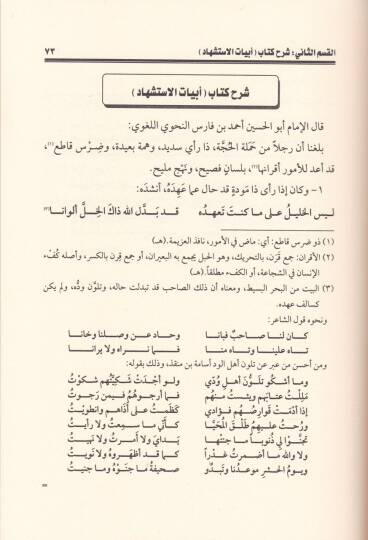 القسم الثاني: شرح كتاب (أبيات الاستشهاد) ٧٣
شرح كتاب (أبيات الاستشهاد)
قال الإمام أبو الحسين أحمد بن فارس النحوي اللغوي:
بلغنا أن رجلاً من حَمَلة الحُجَّة، ذا رأي سديد، وهمة بعيدة، وضِرْس قاطع(١)،
قد أعد للأمور أقرانها(٢)، بلسان فصيح، ونَهْج مليح.
١- وكان إذا رأى ذا مَودةٍ قد حال عما عَهِدَهُ، أنشدَهُ:
ليس الخليلُ على ما كنتَ تعهدُه قد بَدَّل الله ذاكَ الخِلَّ ألوانا(٣)
(١) ذو ضرس قاطع: أي: ماض في الأمور، نافذ العزيمة.(هـ)
(٢) الأقران: جمع قَرَن، بالتحريك، وهو الحبل يجمع به البعيران، أو جمع قِرن بالكسر، وأصله كُفْء
الإنسان في الشجاعة، أو الكفء مطلقاً.(هـ)
(٣) البيت من البحر البسيط، ومعناه أن ذلك الصاحب قد تبدلت حاله، وتلوَّن ودُّه، ولم يكن
كسالف عهده.
ونحوه قول الشاعر:
كان لنا صاحبٌ فبانا وحاد عن وصلنا وخانا
تاه علينا وتاه منا فما نراه ولا يرانا
ومن أحسن من عبر عن تلون أهل الود أسامة بن منقذ، وذلك بقوله:
وما أشكو تلوُّنَ أهلِ وُدِّي ولو أجْدَتْ شَكِيَّتُهم شكوْتُ
مَلِلْتُ عتابَهم ويئستُ منهم فما أرجوهُم فيمن رَجَوتُ
إذا أدْمَتْ قَوارِصُهم فؤادي كَظَمتُ على أذاهم وانطويْتُ
ورُحتُ عليهمُ طَلْقَ المُحَيَّا كأني ما سمِعتُ ولا رأيتُ
تجنَّوا لي ذُنوباً ما جنتْها يدايَ ولا أمرتُ ولا نَهيتُ
ولا والله ما أضمرتُ غدراً كما قد أظهَروهُ ولا نَويْتُ
ويومُ الحشرِ موعدُنا وتَبدُو صحيفةُ ما جَنَوْهُ وما جنيتُ
=